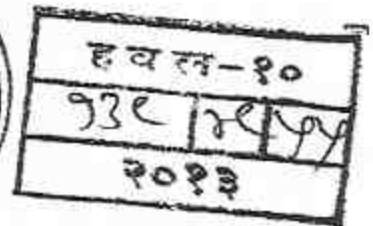 हवल-१०
१३८ | ४८ | ५५
२०१३